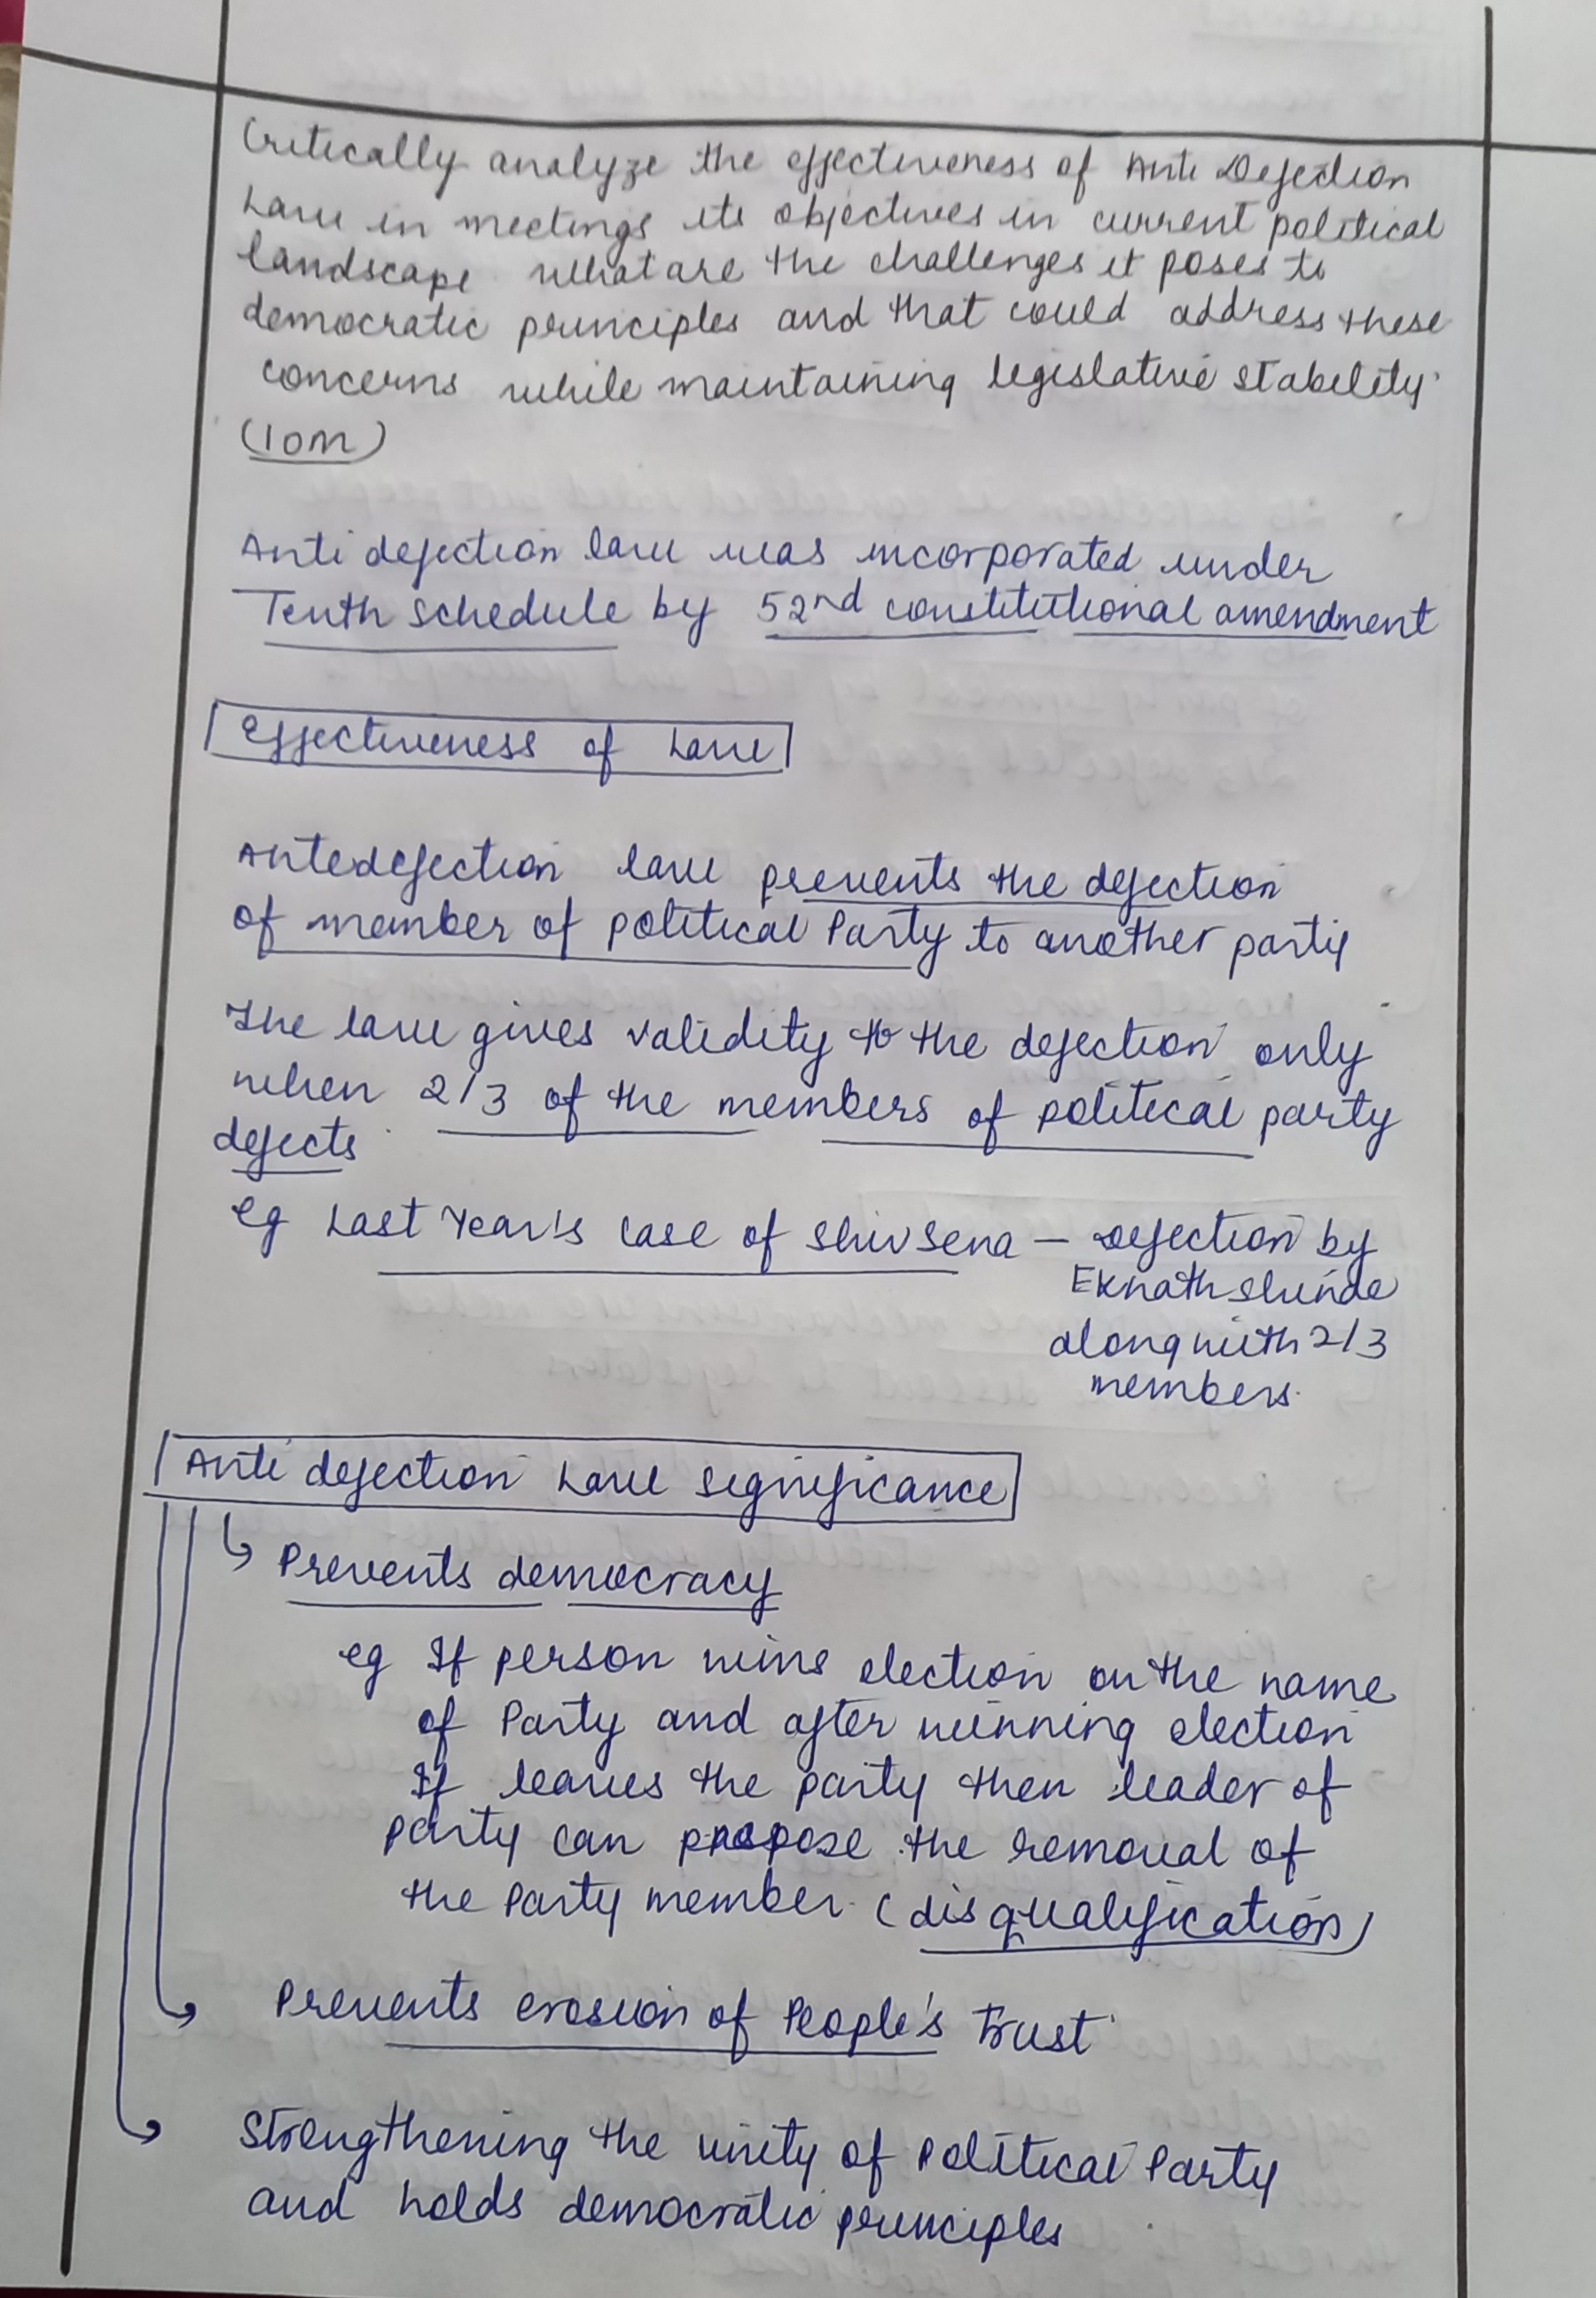 Critically analyze the effectiveness of Anti Defection
Law in meetings its objectives in current political
landscape what are the challenges it poses to
democratic principles and that could address these
concerns while maintaining legislative stability.
(10m)
Anti defection law was incorporated under
Tenth Schedule by 52nd constitutional amendment
Effectiveness of Law
Antidefection law prevents the defection
of member of political Party to another party
The law gives validity to the defection only
when 2/3 of the members of political party
defects
eg Last Year's case of Shivsena – Defection by
Eknath Shinde
along with 2/3
members.
Anti defection Law significance
Prevents democracy
eg If person wins election on the name
of Party and after winning election
If leaves the party then leader of
party can propose the removal of
the Party member (disqualification)
Prevents erosion of People's Trust
Strengthening the unity of Political Party
and holds democratic principles